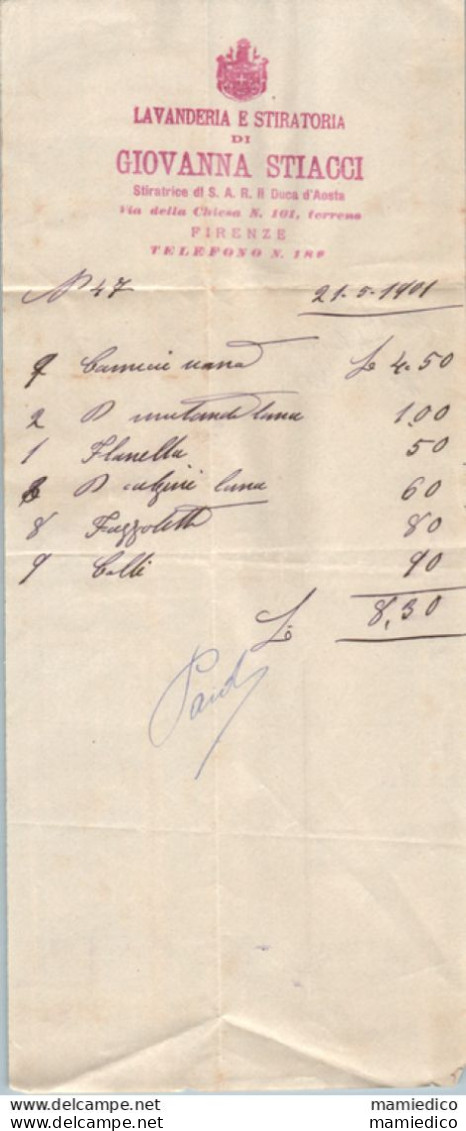 LAVANDERIA E STIRATORIA
DI
GIOVANNA STIACCI
Stiratrice di S. A. R. Il Duca d'Aosta
Via della Chiesa N. 101, terreno
FIRENZE
TELEFONO N.
N 47 21-5-1901
9 Camicie L 4.50
2 P mutande lana 1.00
1 Flanella 50
6 P calzini lana 60
8 Fazzoletti 80
9 Colli 90
L 8,30
Paid
© delcampe.net mamiedico
mamiedico